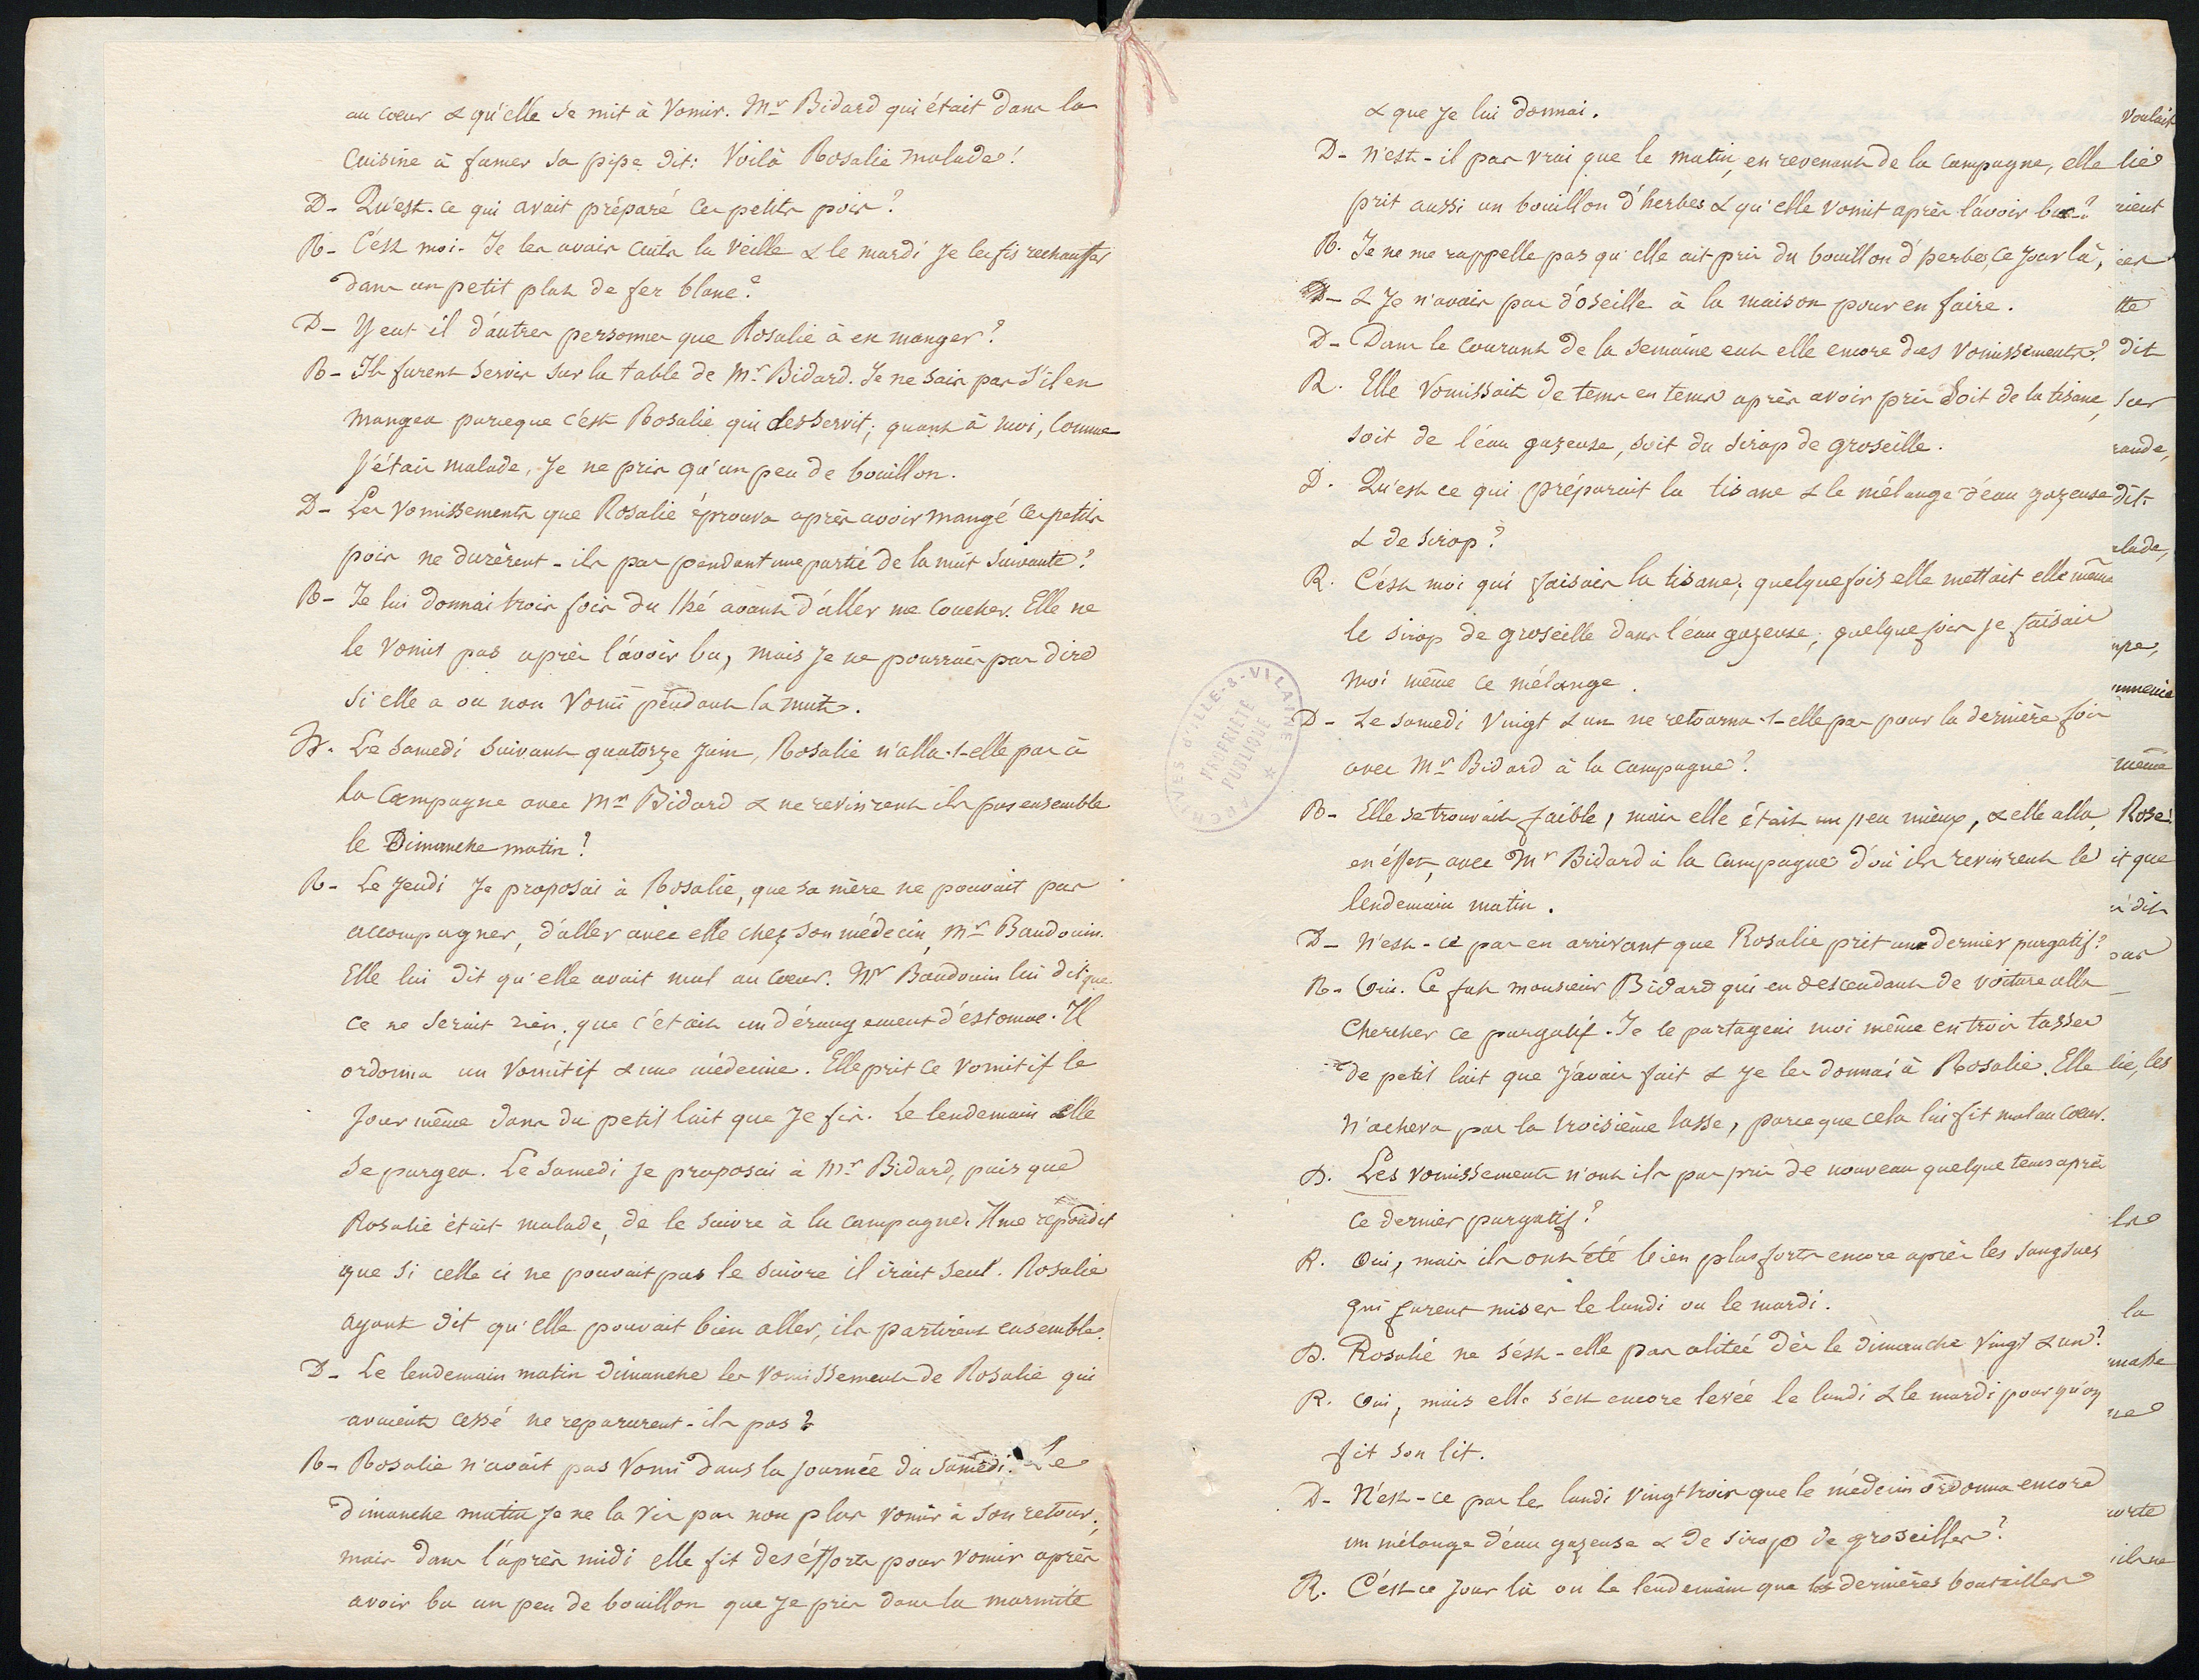 au cœur & qu'elle se mit à vomir. Mr Bidard qui était dans la
cuisine à fumer sa pipe dit: Voilà Rosalie malade!
D- Qu'est-ce qui avait préparé ces petits pois?
R- C'est moi. Je les avais cuits la veille & le mardi je les fis rechauffer
dans un petit plat de fer blanc?
D- Y eut il d'autres personnes que Rosalie à en manger?
R- Ils furent servis sur la table de Mr Bidard. Je ne sais pas s'il en
mangea parceque c'est Rosalie qui desservit; quant à moi, comme
j'étais malade, je ne pris qu'un peu de bouillon.
D- Les vomissements que Rosalie éprouva après avoir mangé ces petits
pois ne durèrent-ils pas pendant une partie de la nuit suivante?
R- Je lui donnai trois fois du thé avant d'aller me coucher. Elle ne
le vomit pas après l'avoir bu, mais je ne pourrais pas dire
si elle a ou non vomi pendant la nuit.
D. Le samedi suivant quatorze juin, Rosalie n'alla-t-elle pas à
la campagne avec Mr Bidard & ne revinrent ils pas ensemble
le Dimanche matin?
R- Le jeudi je proposai à Rosalie, que sa mère ne pouvait pas
accompagner, d'aller avec elle chez son médecin, Mr Baudouin.
Elle lui dit qu'elle avait mal au cœur. Mr Baudouin lui dit que
ce ne serait rien, que c'était un dérangement d'estomac. Il
ordonna un vomitif & une médecine. Elle prit ce vomitif le
jour même dans du petit lait que je fis. Le lendemain elle
se purgea. Le samedi je proposai à Mr Bidard, puis que
Rosalie était malade, de le suivre à la campagne. Il me répondit
que si celle ci ne pouvait pas le suivre il irait seul. Rosalie
ayant dit qu'elle pouvait bien aller, ils partirent ensemble.
D- Le lendemain matin dimanche les vomissements de Rosalie qui
avaient cessé ne reparurent-ils pas?
R- Rosalie n'avait pas vomi dans la journée du samedi. Le
dimanche matin je ne la vis pas non plus vomir à son retour;
mais dans l'après midi elle fit des éfforts pour vomir après
avoir bu un peu de bouillon que je pris dans la marmite
& que je lui donnai.
D- N'est-il pas vrai que le matin, en revenant de la campagne, elle
prit aussi un bouillon d'herbes & qu'elle vomit après l'avoir bu?
R. Je ne me rappelle pas qu'elle ait pris du bouillon d'herbes, ce jour là,
& je n'avais pas d'oseille à la maison pour en faire.
D- Dans le courant de la semaine eut elle encore des vomissements?
R. Elle vomissait de tems en tems après avoir pris soit de la tisane,
soit de l'éau gazeuse, soit du sirop de groseille.
D. Qu'est ce qui préparait la tisane & le mélange d'éau gazeuse
& de sirop?
R. C'est moi qui faisais la tisane; quelquefois elle mettait elle même
le sirop de groseille dans l'éau gazeuse; quelquefois je faisais
moi même ce mélange.
D- Le samedi vingt & un ne retourna-t-elle pas pour la dernière fois
avec Mr Bidard à la campagne?
R- Elle se trouvait faible, mais elle était un peu mieux, & elle alla,
en éffet, avec Mr Bidard à la campagne d'où ils revinrent le
lendemain matin.
D- N'est-ce pas en arrivant que Rosalie prit un dernier purgatif?
R- Oui. Ce fut monsieur Bidard qui en descendant de voiture alla
chercher ce purgatif. Je le partageai moi même en trois tasses
de petit lait que j'avais fait & je les donnai à Rosalie. Elle
n'acheva pas la troisième tasse, parceque cela lui fit mal au cœur.
D. Les vomissements n'ont ils pas pris de nouveau quelque tems après
ce dernier purgatif?
R. Oui, mais ils ont été bien plus forts encore après les sangsues
qui furent mises le lundi ou le mardi.
D. Rosalie ne s'est-elle pas alitée dès le dimanche vingt & un?
R. Oui, mais elle s'est encore levée le lundi & le mardi pour qu'on
fit son lit.
D- N'est-ce pas le lundi vingt trois que le médecin ordonna encore
un mélange d'éau gazeuse & de sirop de groseilles?
R. C'est ce jour là ou le lendemain que les dernières bouteilles
ARCHIVES d'ILLE-&-VILAINE
PROPRIÉTÉ
PUBLIQUE
voulait
lie
rient
ier
tte
dit
sur
rande,
dit
alade,
même
Rosa
it que
dit
pas
lie, les
la
masse
ne
orte
ils ne